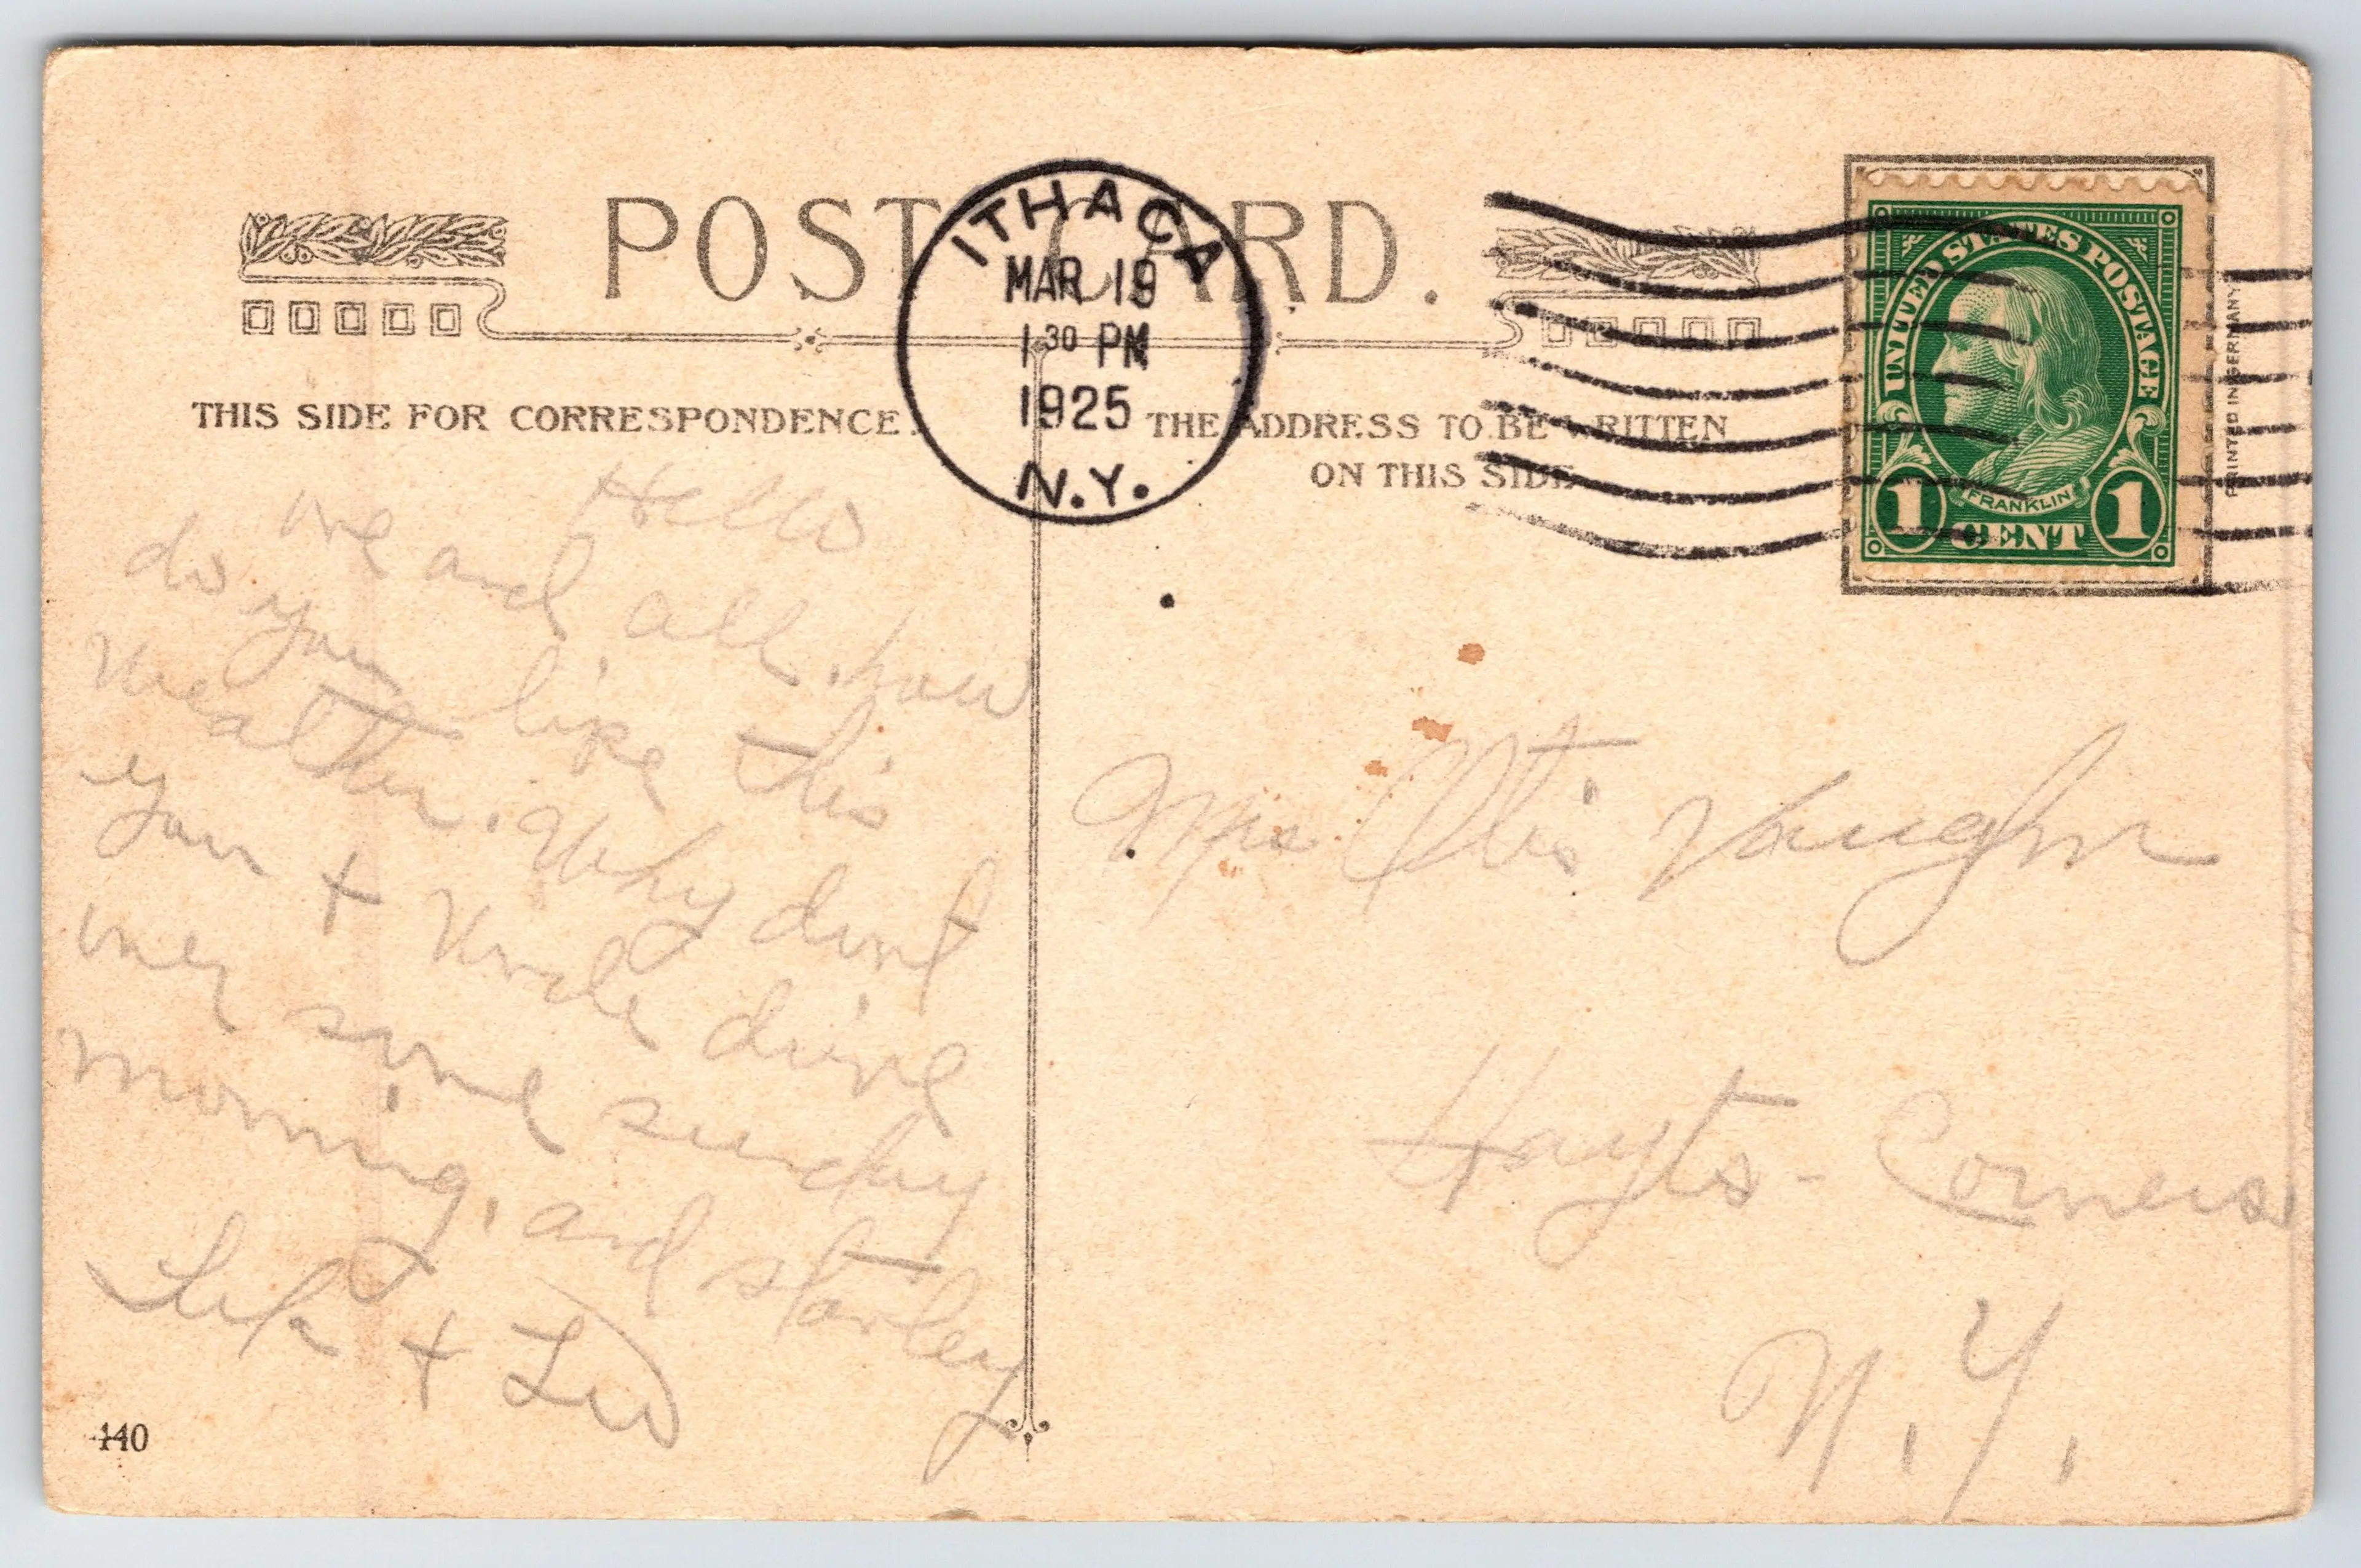 POST CARD.
THIS SIDE FOR CORRESPONDENCE.
THE ADDRESS TO BE WRITTEN
ON THIS SIDE
ITHACA
MAR 19
1 30 PM
1925
N.Y.
UNITED STATES POSTAGE
FRANKLIN
1 CENT 1
PRINTED IN GERMANY
Hello
and all. how
do you like this
weather. Why dont
you + Uncle drive
over some sunday
morning, and
+ Leo
Mrs Otis Vaughn
Hayts-Corners
N.Y.
140